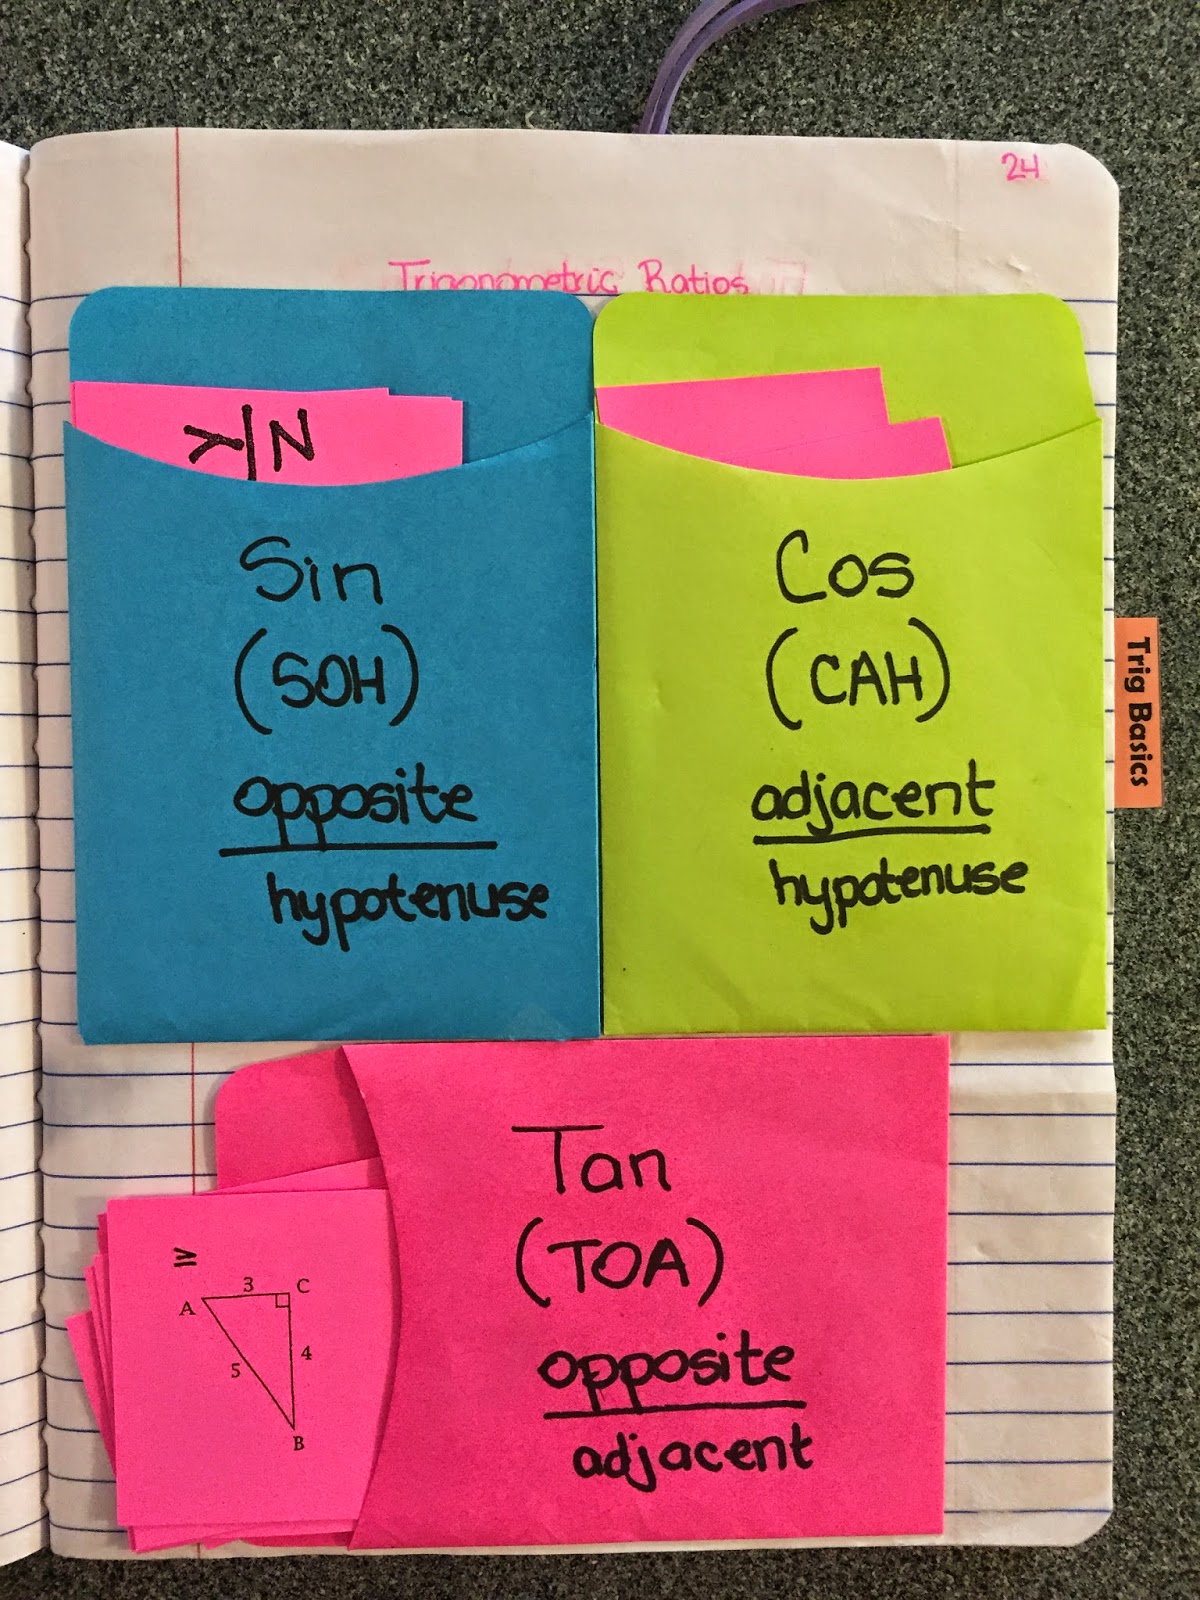 24
Trigonometric Ratios
Y/N
Sin
(SOH)
opposite
hypotenuse
Cos
(CAH)
adjacent
hypotenuse
Trig Basics
Tan
(TOA)
opposite
adjacent
3
A
C
5
4
B